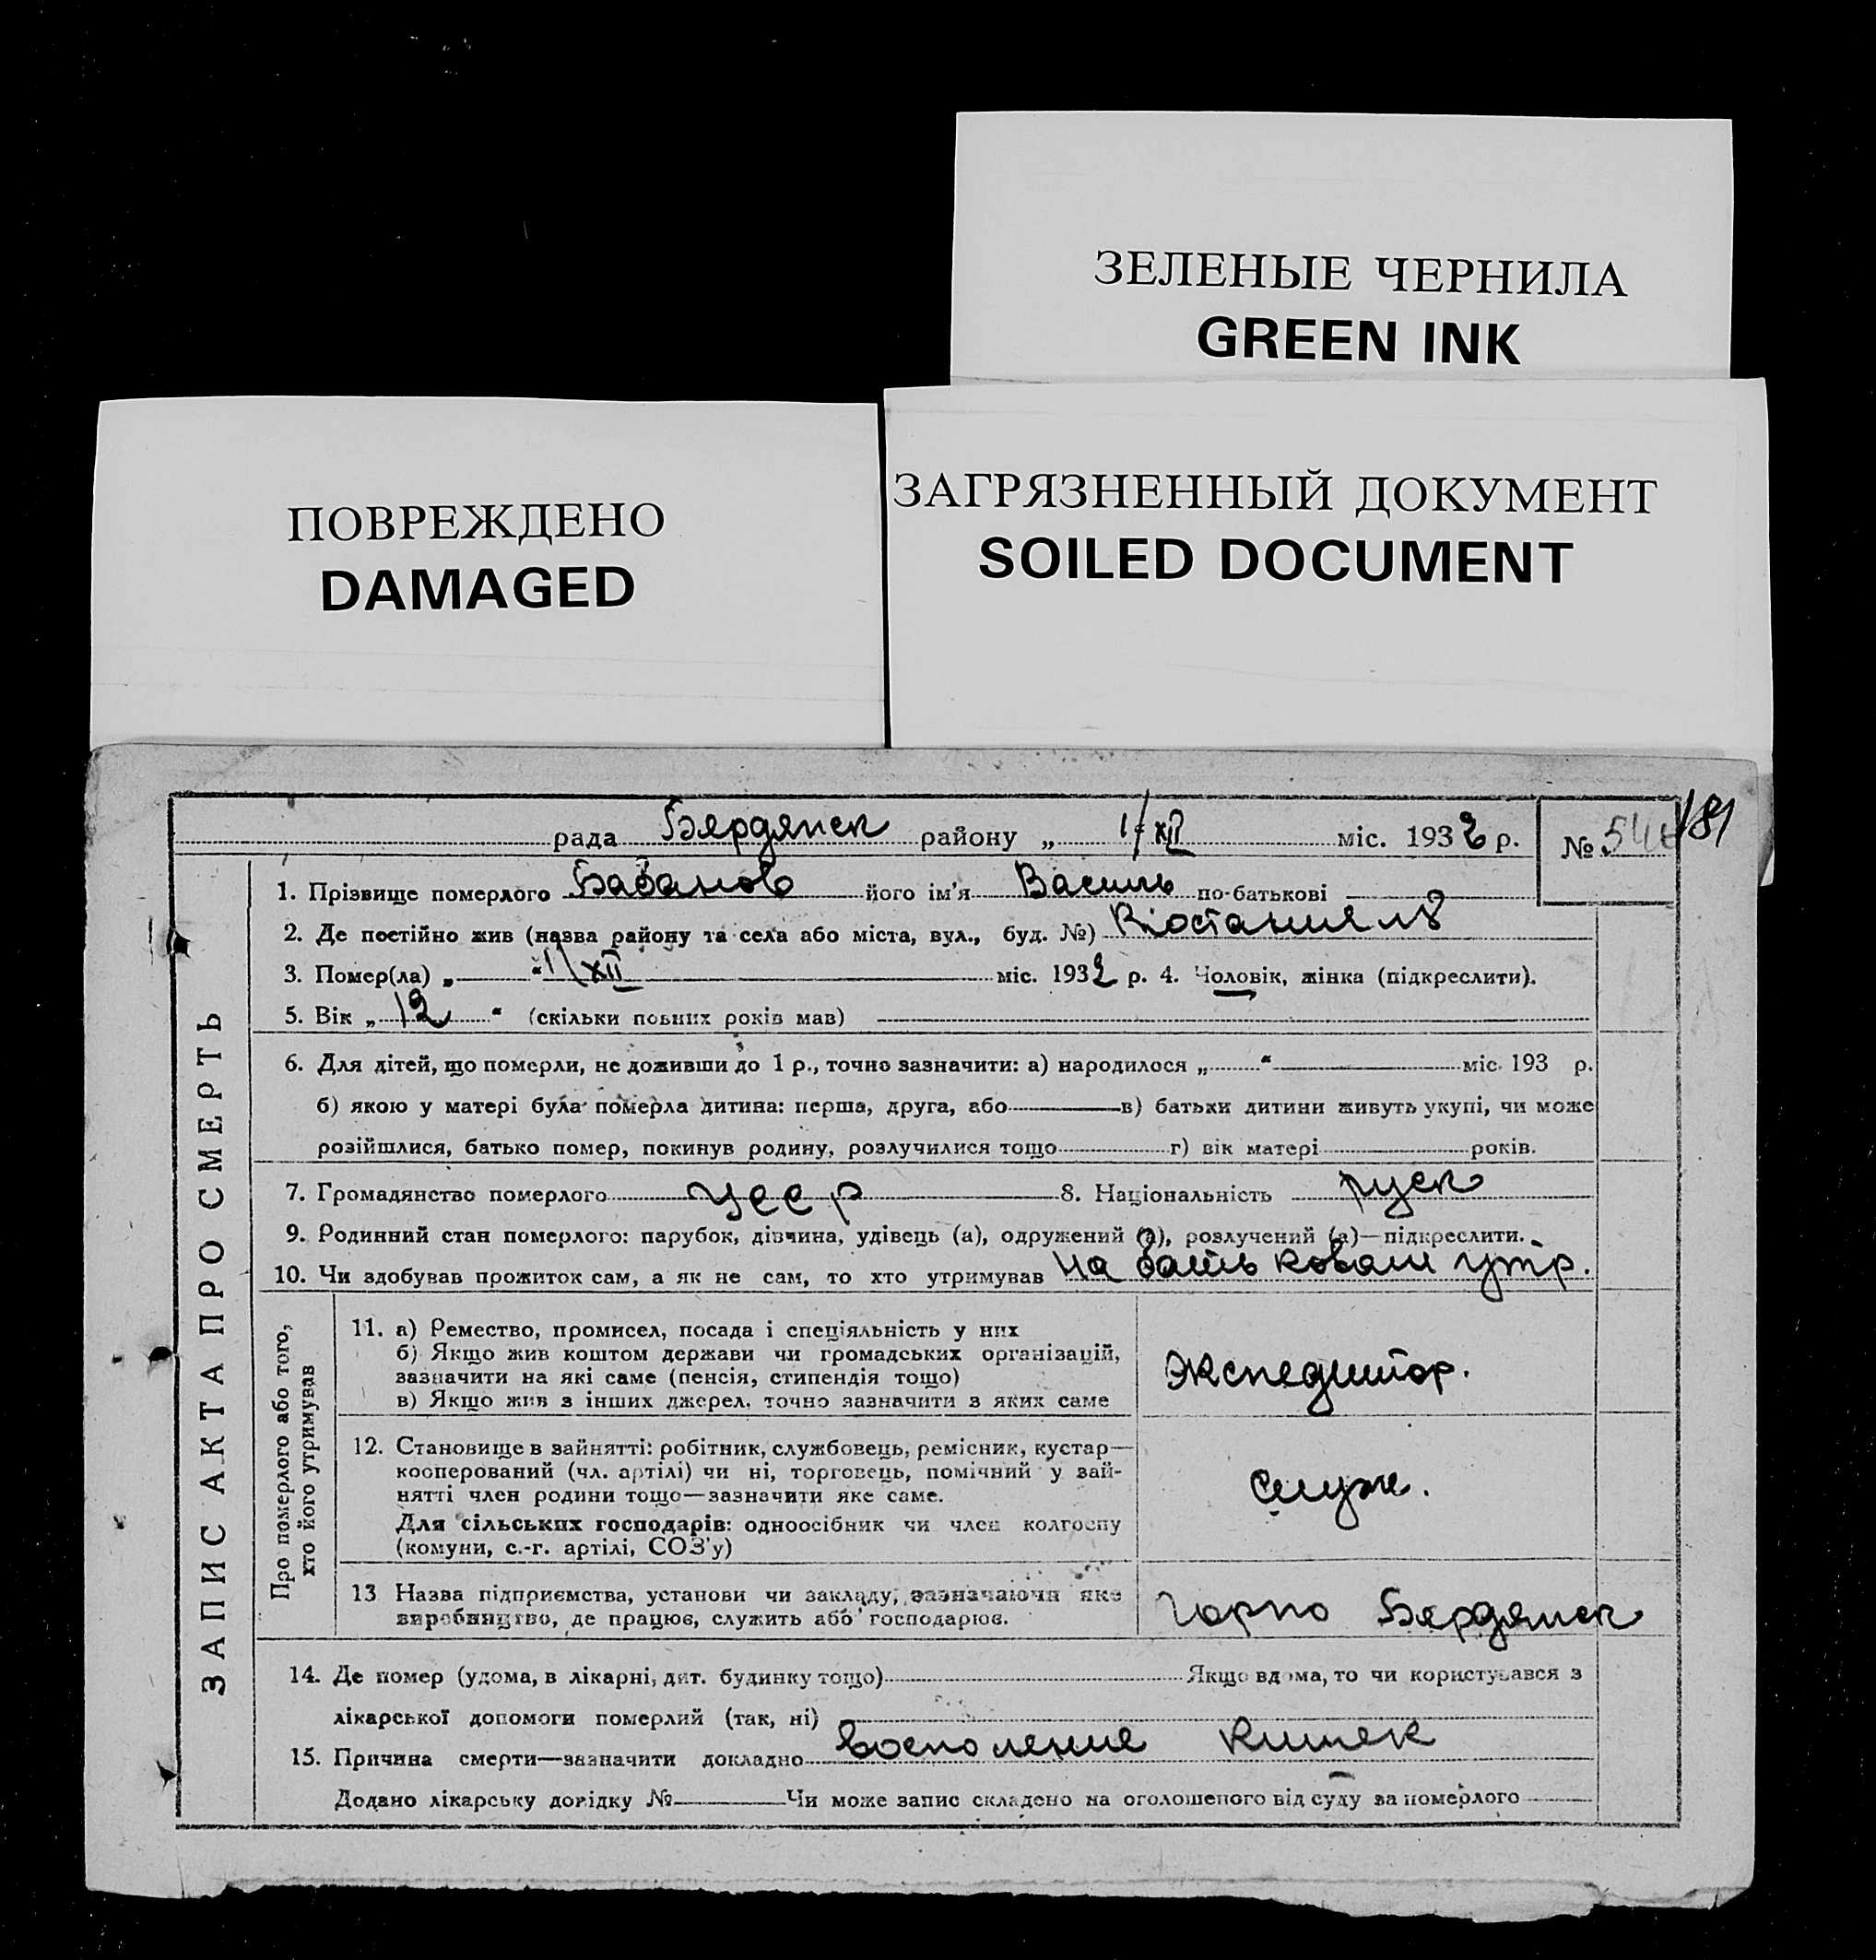 ЗЕЛЕНЫЕ ЧЕРНИЛА
GREEN INK
ПОВРЕЖДЕНО
DAMAGED
ЗАГРЯЗНЕННЫЙ ДОКУМЕНТ
SOILED DOCUMENT
181
рада Бердянск району „ 1/XII міс. 1932 р. №
ЗАПИС АКТА ПРО СМЕРТЬ
1. Прізвище померлого Бабанов його ім'я Василь по-батькові
2. Де постійно жив (назва району та села або міста, вул., буд. №)
3. Помер(ла) „ “ 1/XII міс. 1932 р. 4. Чоловік, жінка (підкреслити).
5. Вік „ 12 “ (скільки повних років мав)
6. Для дітей, що померли, не доживши до 1 р., точно зазначити: а) народилося „ “ міс. 193 р.
б) якою у матері була померла дитина: перша, друга, або в) батьки дитини живуть укупі, чи може
розійшлися, батько помер, покинув родину, розлучилися тощо г) вік матері років.
7. Громадянство померлого УССР 8. Національність руск
9. Родинний стан померлого: парубок, дівчина, удівець (а), одружений (а), розлучений (а)—підкреслити.
10. Чи здобував прожиток сам, а як не сам, то хто утримував на батьковам утр.
Про померлого або того,
хто його утримував
11. а) Ремество, промисел, посада і спеціяльність у них
б) Якщо жив коштом держави чи громадських організацій,
зазначити на які саме (пенсія, стипендія тощо)
в) Якщо жив з інших джерел, точно зазначити з яких саме
экспедитор.
12. Становище в зайнятті: робітник, службовець, ремісник, кустар—
кооперований (чл. артілі) чи ні, торговець, помічний у зай-
нятті член родини тощо—зазначити яке саме.
Для сільських господарів: одноосібник чи член колгоспу
(комуни, с.-г. артілі, СОЗ'у)
служ.
13 Назва підприємства, установи чи закладу, зазначаючи яке
виробництво, де працює, служить або господарює.
Горпо Бердянск
14. Де помер (удома, в лікарні, дит. будинку тощо) Якщо вдома, то чи користувався з
лікарської допомоги померлий (так, ні)
15. Причина смерти—зазначити докладно восполение кишек
Додано лікарську довідку № Чи може запис складено на оголошеного від суду за померлого